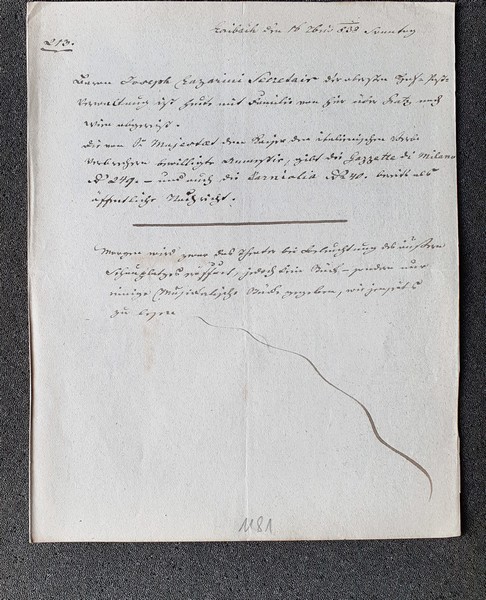 Laibach den 16 7ber 838 Sonntag
213.
Baron Joseph Lazarini Secretair der obersten
Verwaltung ist heute mit Familie von hier über Gratz nach
Wien abgereist.
Die von Sr Majestaet dem Kaiser den italienischen
Verbrechern bewilligte Amnestie, gibt die Gazzetta di Milano
No 249. – und auch die Carniolia No 40. bereits als
öffentliche Nachricht.
Morgen wird zwar das Theater bei Beleuchtung des äußern
Schauplatzes eröffnet, jedoch kein Stück – sondern nur
einige Musikalische Stücke gegeben, wie jenseits
zu lesen
1181